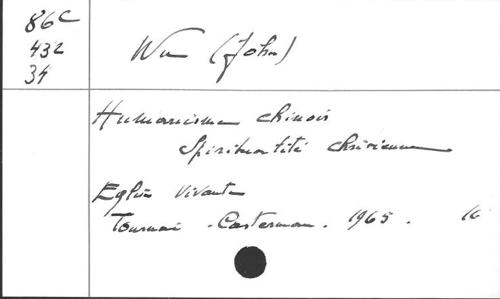 86C
432
34
Wu (John)
Humanisme chinois
Spiritualité chrétienne
Eglise vivante
Tournai - Casterman. 1965. 16